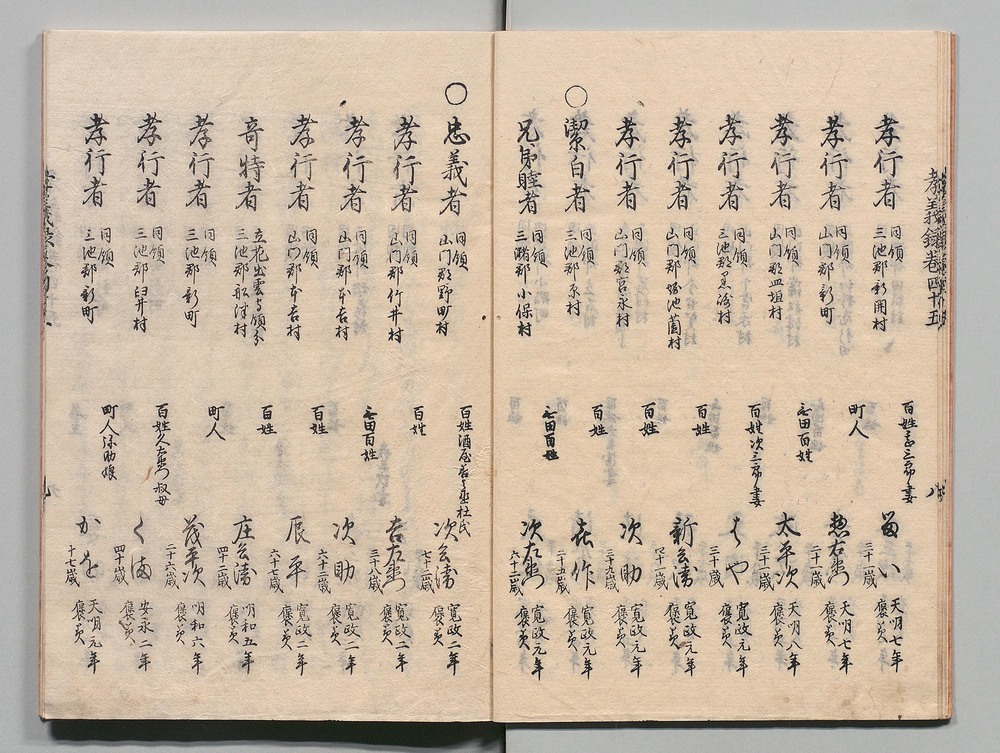 孝義録巻四十五
孝行者 同領 三池郡新開村 百姓 妻 三十一歳 天明七年 褒美
孝行者 同領 三池郡新町 町人 惣右衛門 二十一歳 天明七年 褒美
孝行者 同領 山門郡皿垣村 無田百姓 太平次 三十一歳 天明八年 褒美
孝行者 同領 三池郡 村 百姓次三郎妻 はや 三十歳 寛政元年 褒美
孝行者 同領 山門郡 池園村 百姓 新兵衛 四十一歳 寛政元年 褒美
孝行者 同領 山門郡宮永村 百姓 次助 三十九歳 寛政元年 褒美
○潔白者 同領 三池郡 村 百姓 喜作 二十五歳 寛政元年 褒美
兄弟睦者 同領 三潴郡小保村 無田百姓 次右衛門 六十二歳 寛政元年 褒美
八
○忠義者 同領 山門郡野町村 百姓酒屋 杜氏 次兵衛 七十二歳 寛政二年 褒美
孝行者 同領 山門郡竹井村 百姓 吉右衛門 三十歳 寛政二年 褒美
孝行者 同領 山門郡本吉村 無田百姓 次助 六十二歳 寛政二年 褒美
孝行者 同領 山門郡本吉村 百姓 辰平 六十七歳 寛政二年 褒美
奇特者 立花出雲守領分 三池郡船津村 百姓 庄兵衛 四十二歳 明和五年 褒美
孝行者 同領 三池郡新町 町人 茂平次 二十六歳 明和六年 褒美
孝行者 同領 三池郡臼井村 百姓久右衛門叔母 くま 四十歳 安永二年 褒美
孝行者 同領 三池郡新町 町人弥助娘 かを 十七歳 天明元年 褒美
九